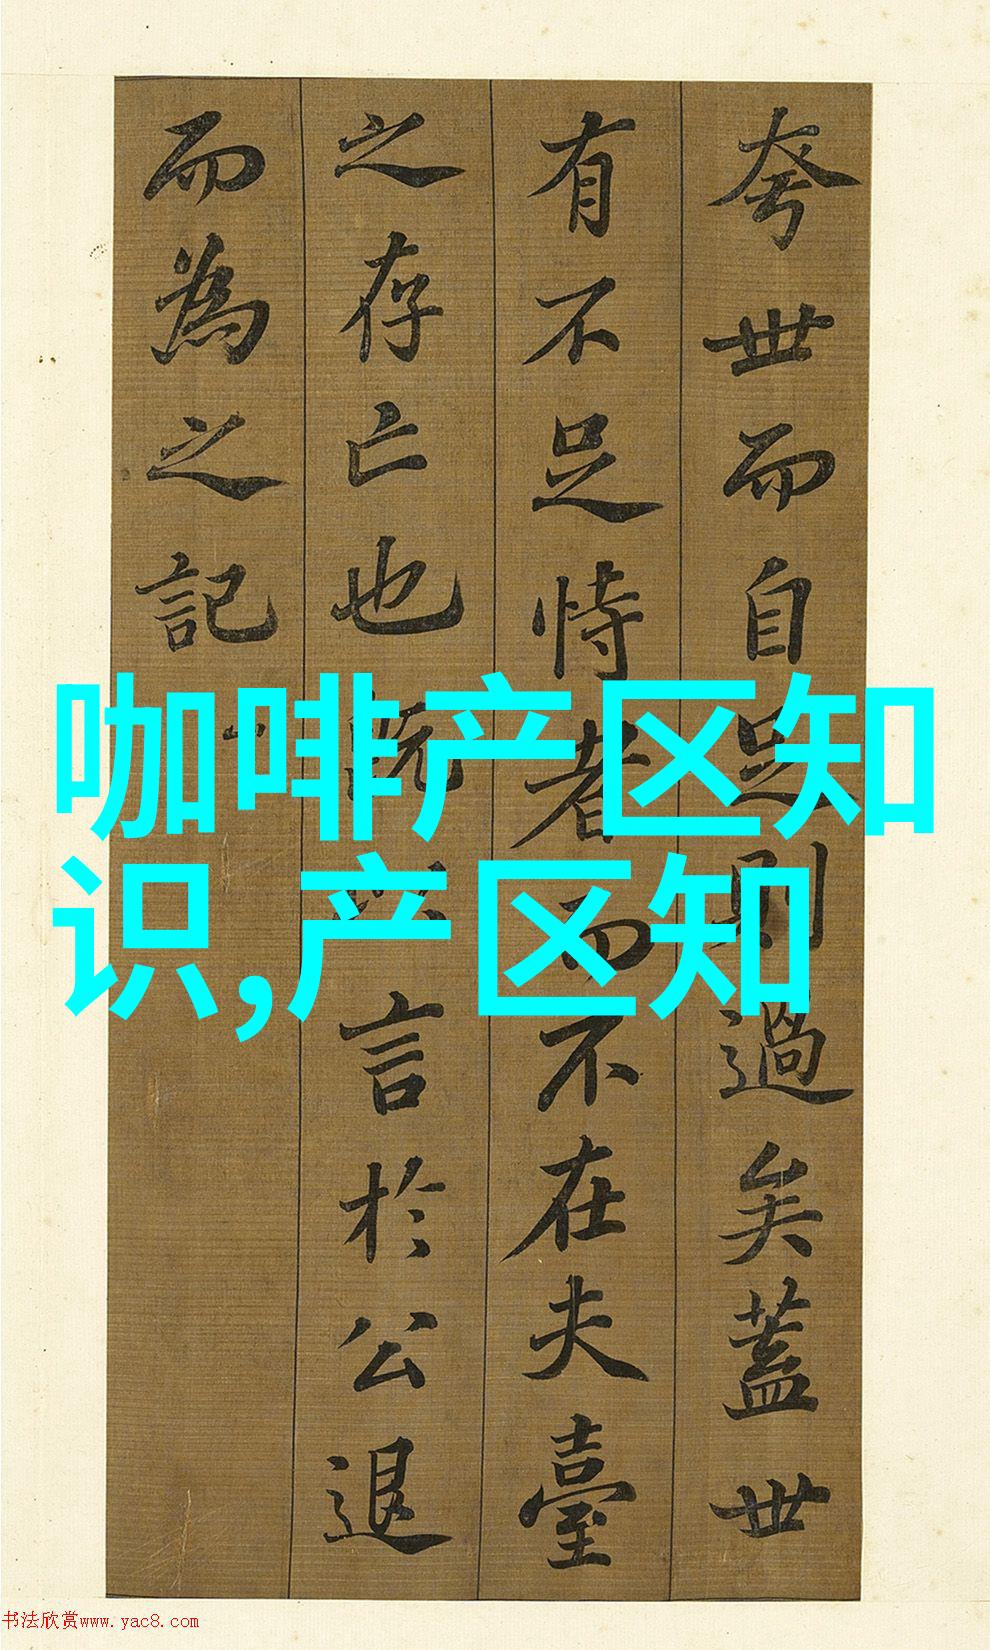 夸世而自足則過矣蓋世
有不足恃者而不在夫臺
之存亡也既以言於公退
而為之記
咖啡产区知
识,产区知
书法欣赏www.yac8.com